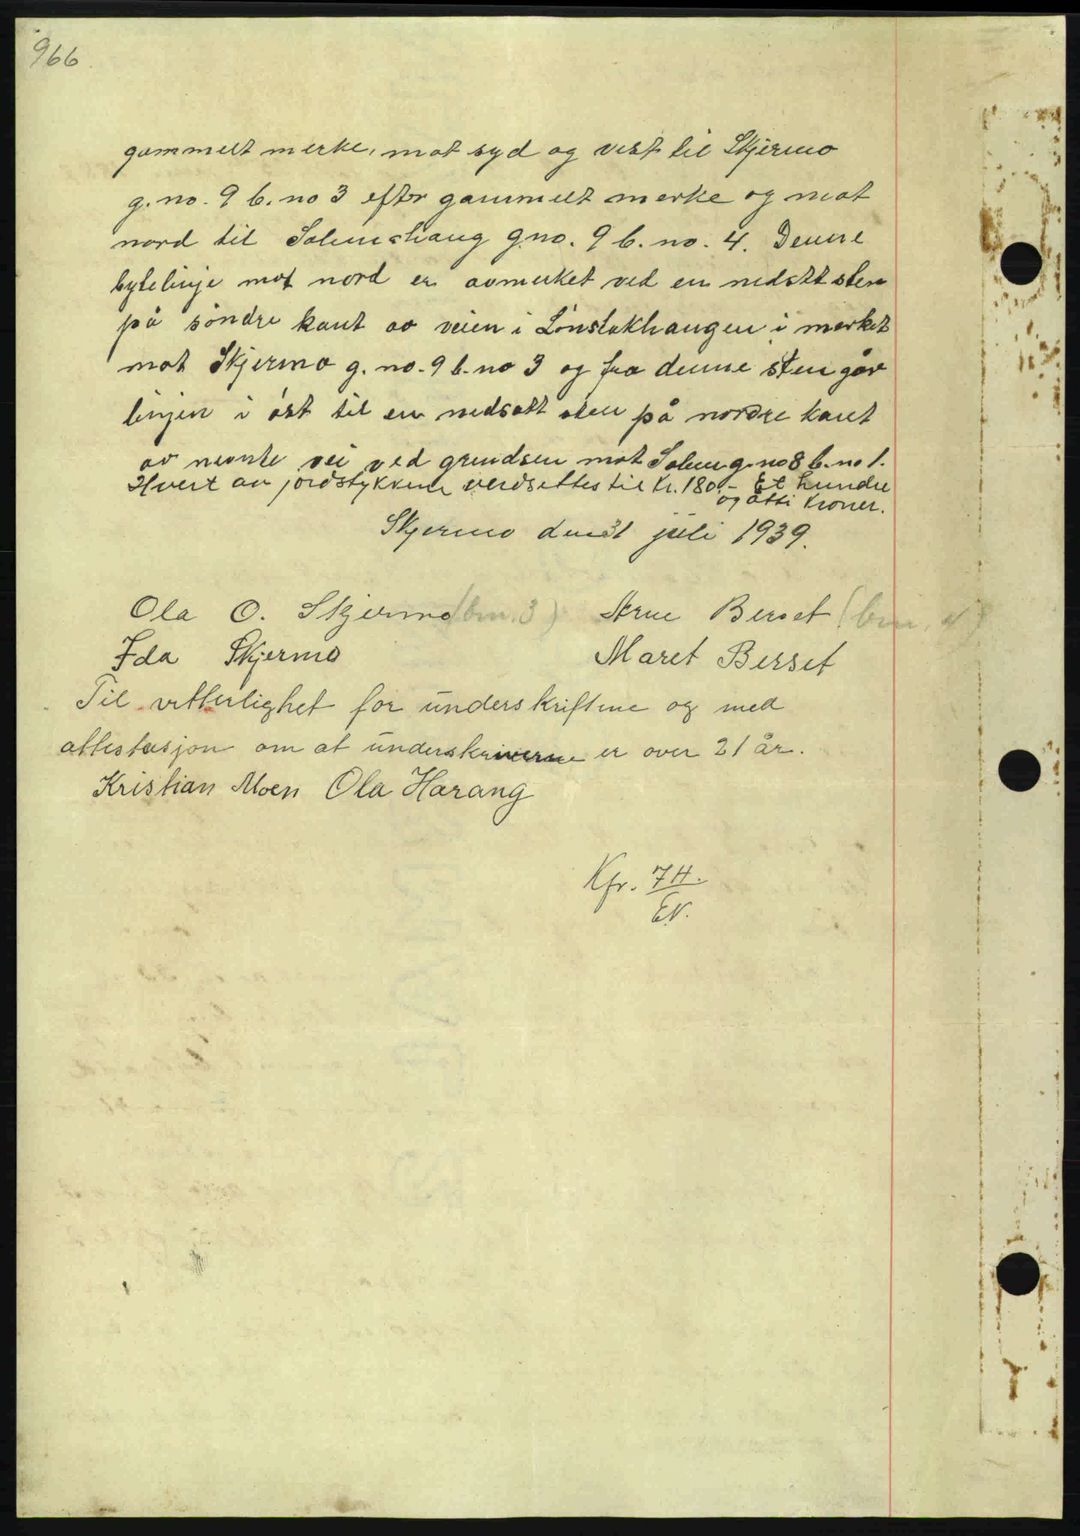 966
gammelt merke, mot syd og vest til Skjermo
g.no. 9 b.no 3 efter gammelt merke og mot
nord til Solemshaug g.no. 9 b.no. 4. Denne
bytelinje mot nord er avmerket ved en nedsatt sten
på söndre kant av veien i Lönstakhaugen i merket
mot Skjermo g.no. 9 b.no 3 og fra denne sten går
linjen i öst til en nedsatt sten på nordre kant
av nevnte vei ved grendsen mot Solem g.no 8 b.no 1.
Hvert av jordstykkene verdsettes til kr. 180,- Et hundre
og åtti kroner.
Skjermo den 31 juli 1939.
Ola O. Skjermo (bnr. 3) Arne Berset (bnr. 4)
Ida Skjermo Maret Berset
Til vitterlighet for underskriftene og med
attestasjon om at underskriverne er over 21 år.
Kristian Moen Ola Harang
Kfr. 7H.
EN.